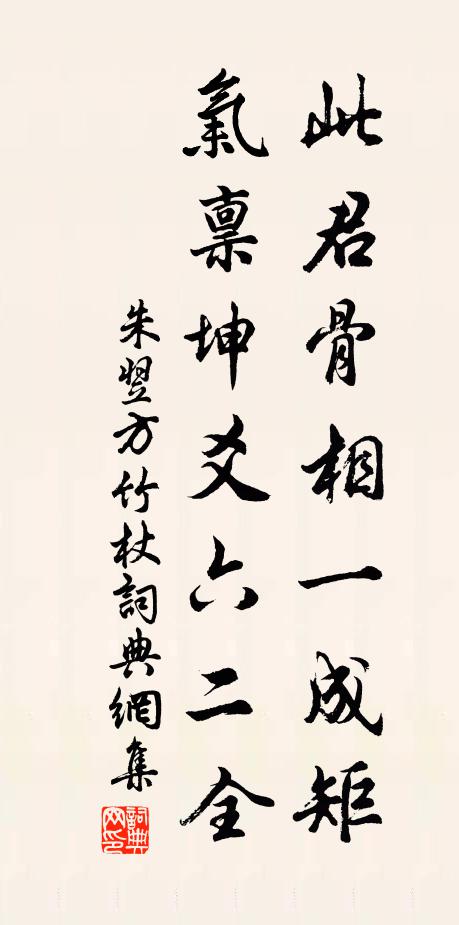 此君骨相一成矩
氣禀坤爻六二全
朱翌方竹杖詞典網集
詞典网印